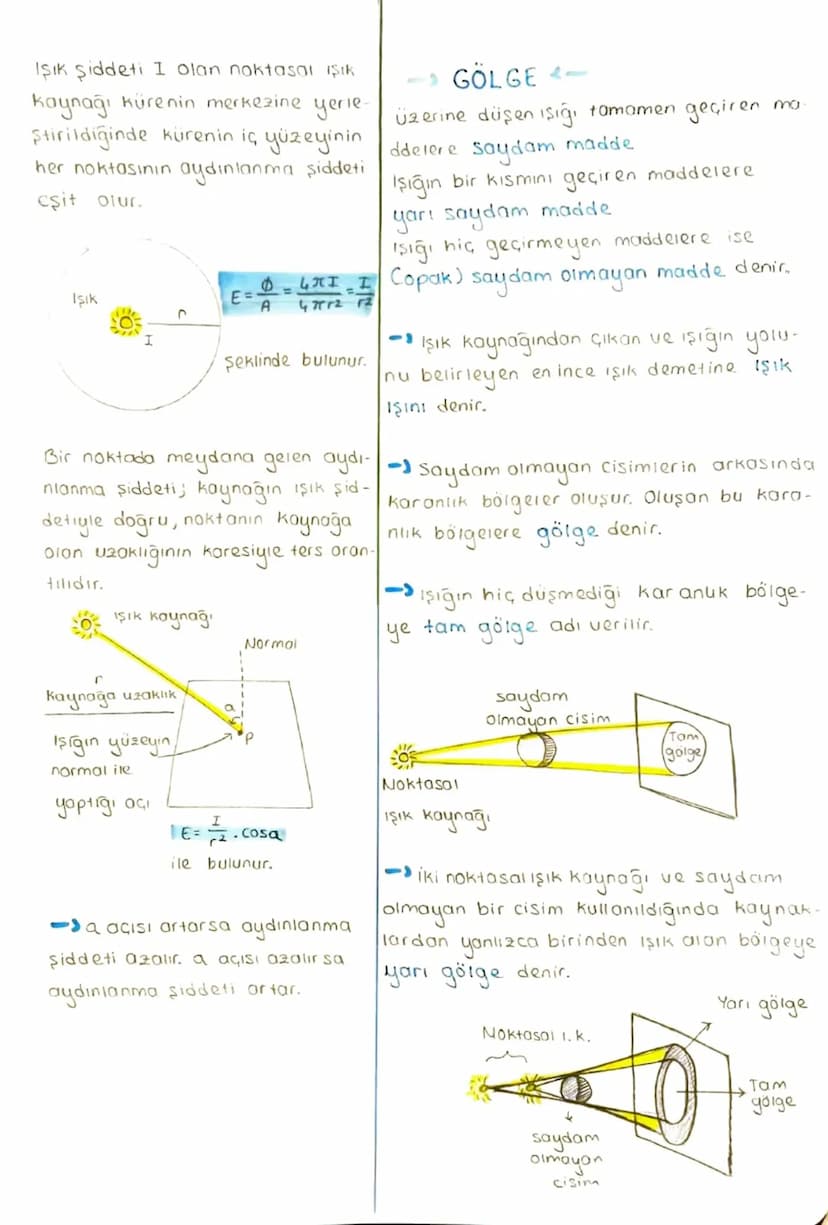 Işık şiddeti I olan noktasal ışık
kaynağı kürenin merkezine yerle-
ştirildiğinde kürenin iç yüzeyinin
her noktasının aydınlanma şiddeti
eşit olur.
Işık
r
I
E = Φ/A = 4πI/4πr² = I/r²
şeklinde bulunur.
Bir noktada meydana gelen aydı-
nlanma şiddeti; kaynağın ışık şid-
detiyle doğru, noktanın kaynağa
olan uzaklığının karesiyle ters oran-
tılıdır.
ışık kaynağı
Normal
r
kaynağa uzaklık
a
P
Işığın yüzeyin
normal ile
yaptığı açı
E = I/r² . cosa
ile bulunur.
→ a açısı artarsa aydınlanma
şiddeti azalır. a açısı azalırsa
aydınlanma şiddeti artar.
→ GÖLGE ←
üzerine düşen ışığı tamamen geçiren ma-
ddelere saydam madde
Işığın bir kısmını geçiren maddelere
yarı saydam madde
Işığı hiç geçirmeyen maddelere ise
(opak) saydam olmayan madde denir.
→ Işık kaynağından çıkan ve ışığın yolu-
nu belirleyen en ince ışık demetine ışık
ışını denir.
→ Saydam olmayan cisimlerin arkasında
karanlık bölgeler oluşur. Oluşan bu kara-
nlık bölgelere gölge denir.
→ Işığın hiç düşmediği karanlık bölge-
ye tam gölge adı verilir.
saydam
olmayan cisim
Tam
gölge
Noktasal
ışık kaynağı
→ İki noktasal ışık kaynağı ve saydam
olmayan bir cisim kullanıldığında kaynak-
lardan yanlızca birinden ışık alan bölgeye
yarı gölge denir.
Yarı gölge
Noktasal ı.k.
Tam
gölge
saydam
olmayan
cisim